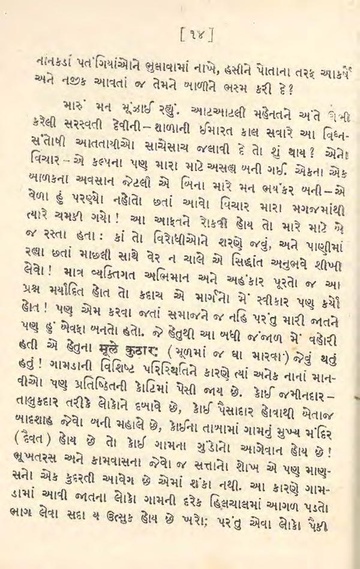 [ ૧૪ ]
નાનકડાં પતંગિયાંઓને ભુલાવામાં નાખે, હસીને પોતાના તરફ આકર્ષે
અને નજીક આવતાં જ તેમને બાળીને ભસ્મ કરી દે?
મારું મન મૂંઝાઈ રહ્યું. આટઆટલી મહેનતને અંતે
કરેલી સરસ્વતી દેવીની–શાળાની ઈમારત કાલ સવારે આ વિઘ્ન-
સંતોષી આતતાયીઓ સાચેસાચ જલાવી દે તો શું થાય? એનો
વિચાર–એ કલ્પના પણ મારા માટે અસહ્ય બની ગઈ. એકના એક
બાળકના અવસાન જેટલી એ બિના મારે મન ભયંકર બની–એ
વેળા હું પરણ્યો નહોતો છતાં આવો વિચાર મારા મગજમાંથી
ત્યારે ચમકી ગયો! આ આફતને રોકવી હોય તો મારે માટે બે
જ રસ્તા હતા: કાં તો વિરોધીઓને શરણે જવું, અને પાણીમાં
રહ્યા છતાં માછલી સાથે વેર ન ચાલે એ સિદ્ધાંત અનુભવે શીખી
લેવો! માત્ર વ્યક્તિગત અભિમાન અને અહંકાર પૂરતો જ આ
પ્રશ્ન મર્યાદિત હોત તો કદાચ એ માર્ગનો મેં સ્વીકાર પણ કર્યો
હોત! પણ એમ કરવા જતાં સમાજને જ નહિ પરંતુ મારી જાતને
પણ હું બેવફા બનતો હતો. જે હેતુથી આ બધી જંજાળ મેં વહોરી
હતી એ હેતુના મૂલે કુઠાર: (મૂળમાં જ ઘા મારવા) જેવું થતું
હતું! ગામડાની વિશિષ્ટ પરિસ્થિતિને કારણે ત્યાં અનેક નાનાં માન-
વીઓ પણ પ્રતિષ્ઠિતની કોટિમાં પેસી જાય છે. કોઈ જમીનદાર–
તાલુકદાર તરીકે લોકોને દબાવે છે, કોઈ પૈસાદાર હોવાથી બેતાજ
બાદશાહ જેવો બની મહાલે છે, કોઈના તાબામાં ગામનું મુખ્ય મંદિર
(દૈવત) હોય છે તો કોઈ ગામના ગુંડાનો આગેવાન હોય છે!
ભૂખતરસ અને કામવાસના જેવો જ સત્તાનો શોખ એ પણ માણ-
સનો એક કુદરતી આવેગ છે એમાં શંકા નથી. આ કારણે ગામ-
ડામાં આવી જાતના લોકો ગામની દરેક હિલચાલમાં આગળ પડતો
ભાગ લેવા સદા ય ઉત્સુક હોય છે ખરો; પરંતુ એવા લોકો પૈકી